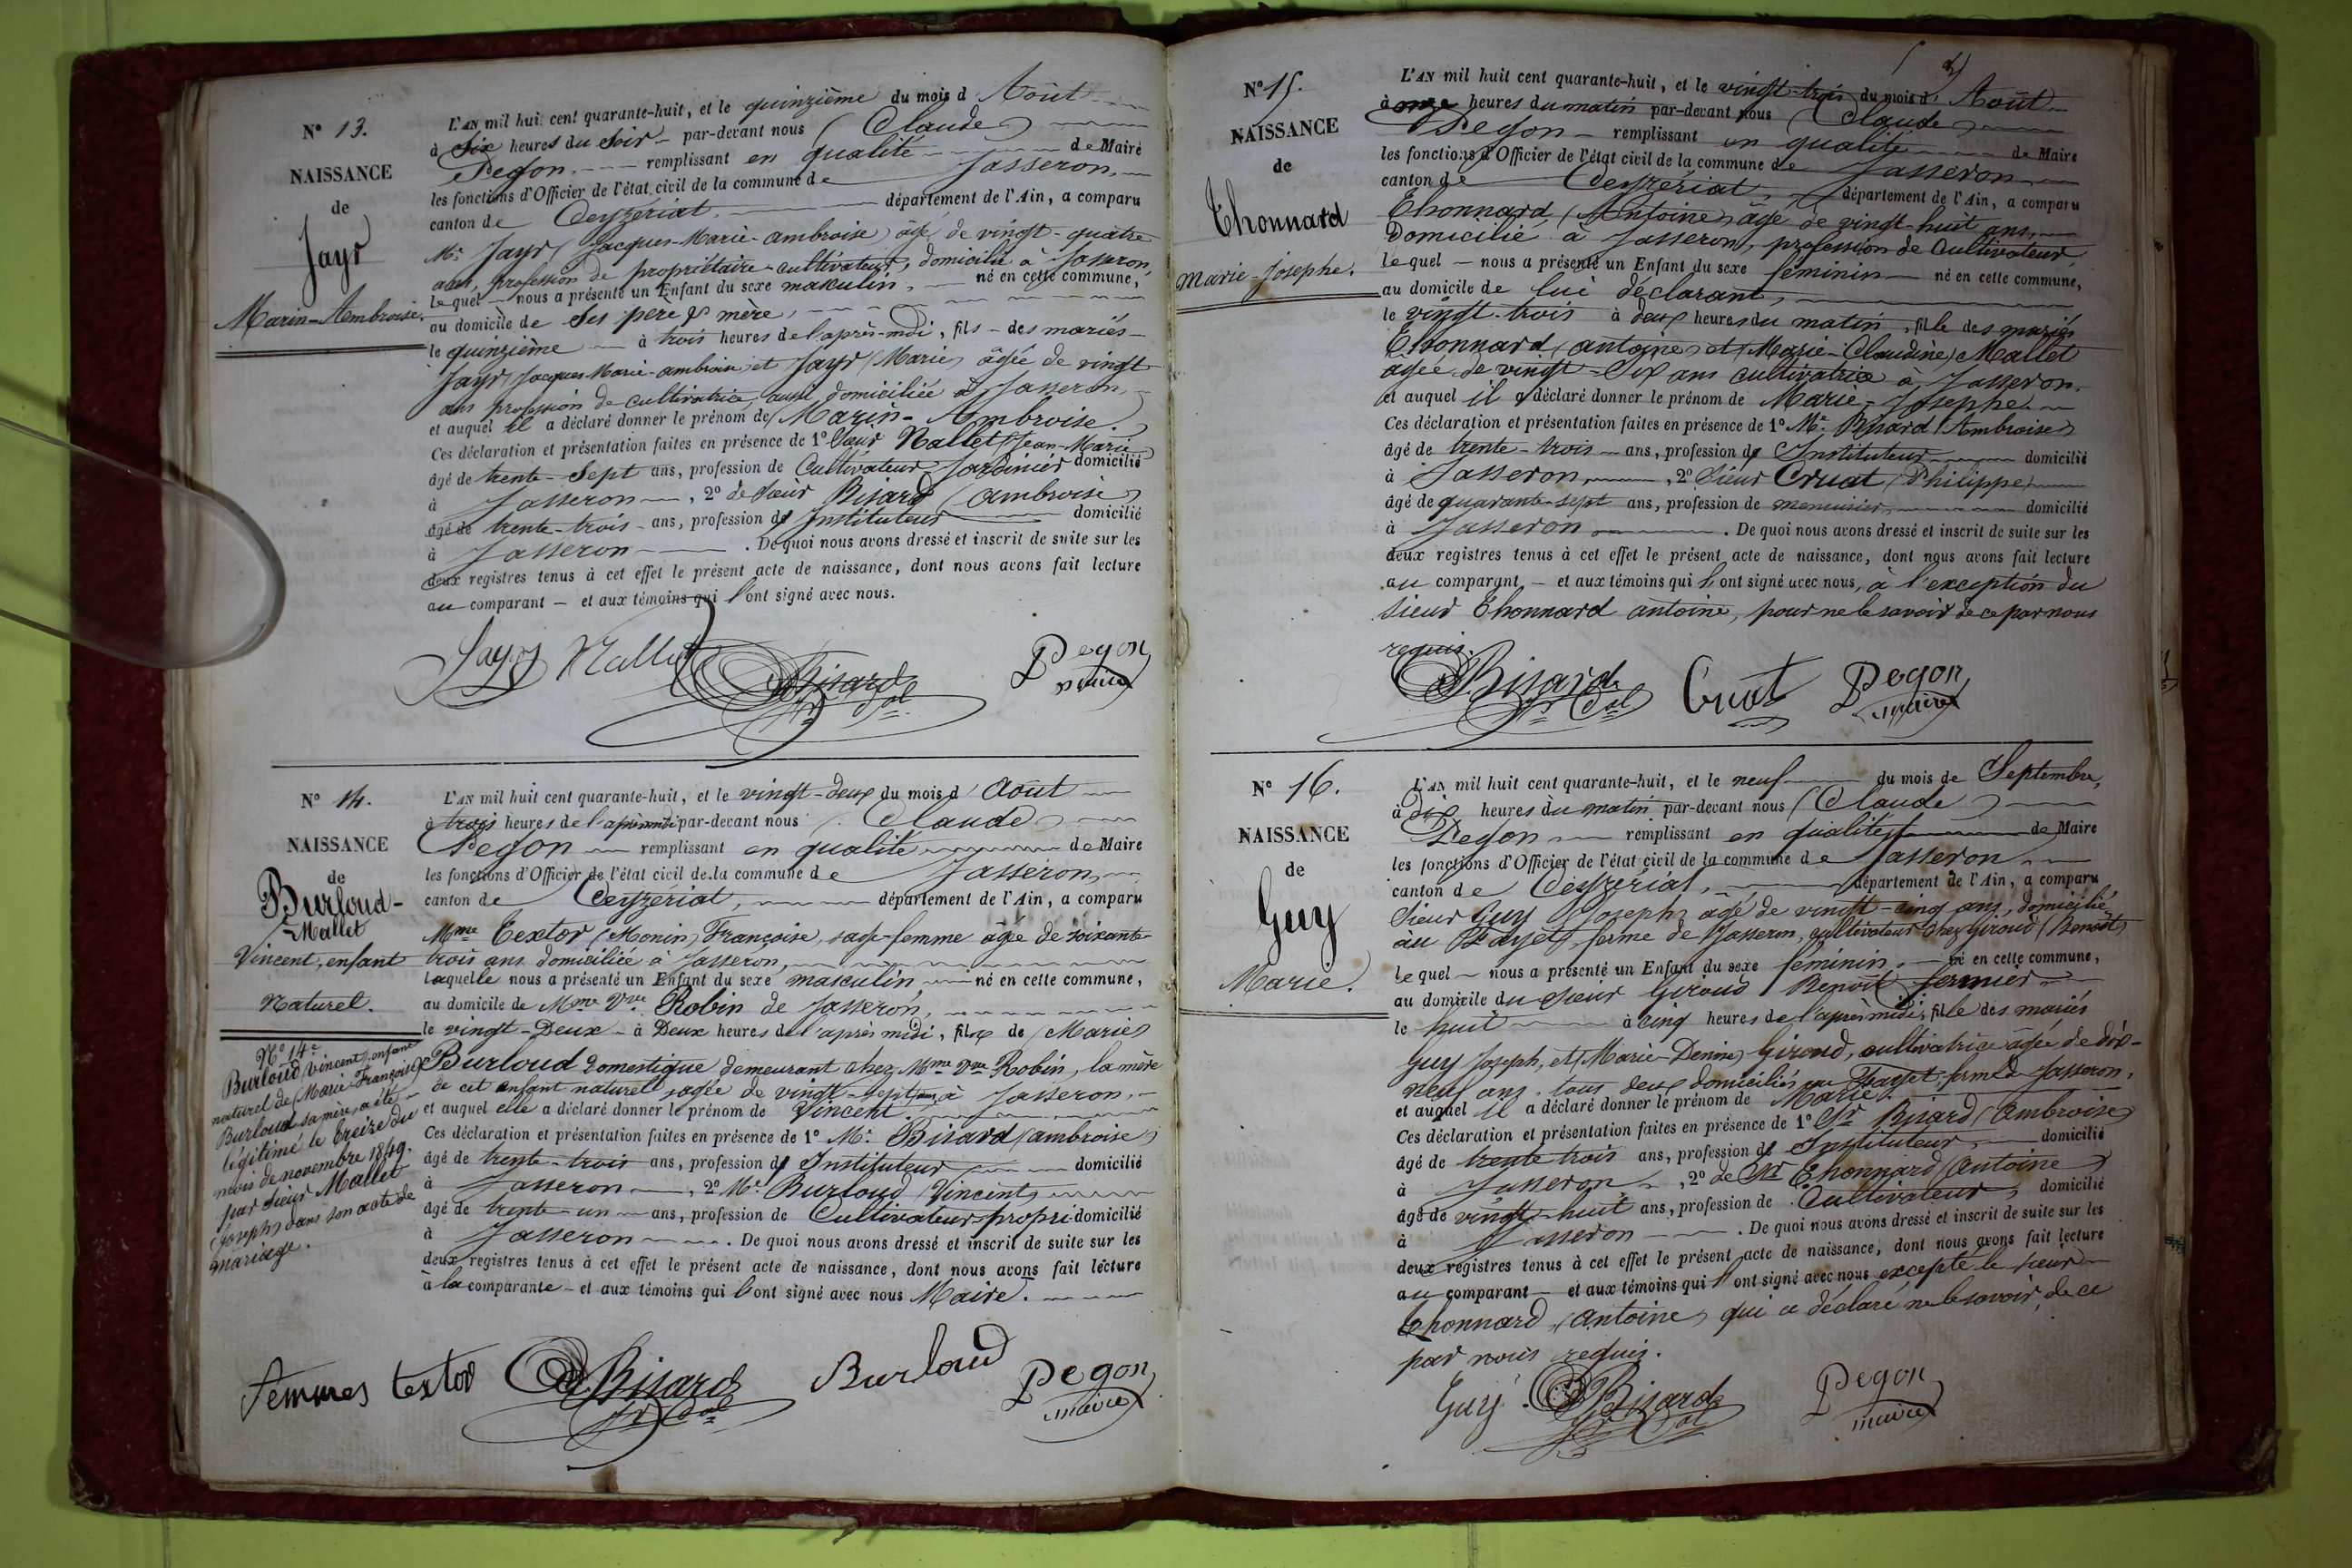 N° 13.
NAISSANCE
de
Jayr
Marin-Ambroise.
L'AN mil huit cent quarante-huit, et le quinzième du mois d Août
à six heures du soir - par-devant nous (Claude)
Pegon. remplissant en qualité de Maire
les fonctions d'Officier de l'état civil de la commune de Jasseron,
canton de Ceyzériat, département de l'Ain, a comparu
Mr. Jayr (Jacques-Marie-ambroise) âgé de vingt-quatre
ans, profession de propriétaire-cultivateur, domicilié à Jasseron,
lequel - nous a présenté un Enfant du sexe masculin, né en cette commune,
au domicile de ses pere & mère,
le quinzième à trois heures de l'après-midi, fils - des mariés -
Jayr (Jacques Marie-ambroise) et Jayr (Marie) âgée de vingt
ans profession de cultivatrice, aussi domiciliée à Jasseron,
et auquel il a déclaré donner le prénom de Marin-Ambroise.
Ces déclaration et présentation faites en présence de 1° Sieur Nallet (Jean-Marie)
âgé de trente-sept ans, profession de Cultivateur Jardinier domicilié
à Jasseron, 2° de sieur Bisard (ambroise)
âgé de trente-trois ans, profession d' Instituteur domicilié
à Jasseron. De quoi nous avons dressé et inscrit de suite sur les
deux registres tenus à cet effet le présent acte de naissance, dont nous avons fait lecture
au comparant - et aux témoins qui l'ont signé avec nous.
Jayr Nallet Bisard Pegon
maire
N° 14.
NAISSANCE
de
Burloud-
Mallet
Vincent, enfant
Naturel.
N° 14e
Burloud (Vincent) enfant
naturel de (Marie-Françoise)
Burloud sa mère, a été
légitimé le treize du
mois de novembre 1849.
par sieur Mallet
(joseph) dans son acte de
mariage.
L'AN mil huit cent quarante-huit, et le vingt-deux du mois d' Août
à trois heures de l'après midi par-devant nous (Claude)
Pegon remplissant en qualité de Maire
les fonctions d'Officier de l'état civil de la commune de Jasseron,
canton de Ceyzériat, département de l'Ain, a comparu
Mme Textor (Monin) Françoise, sage-femme âgée de soixante-
trois ans domiciliée à Jasseron,
laquelle nous a présenté un Enfant du sexe masculin, né en cette commune,
au domicile de Mme Vve Robin de Jasseron,
le vingt-Deux à Deux heures de l'après midi, fils de (Marie)
Burloud Domestique demeurant chez Mme Vve Robin, la mère
de cet enfant naturel, agée de vingt-sept ans, à Jasseron,
et auquel elle a déclaré donner le prénom de Vincent.
Ces déclaration et présentation faites en présence de 1° Mr. Bisard (ambroise)
âgé de trente-trois ans, profession d' Instituteur domicilié
à Jasseron, 2° Mr. Burloud (Vincent)
âgé de trente-un ans, profession de Cultivateur-propri domicilié
à Jasseron. De quoi nous avons dressé et inscrit de suite sur les
deux registres tenus à cet effet le présent acte de naissance, dont nous avons fait lecture
à la comparante - et aux témoins qui l'ont signé avec nous Maire.
femmes textor Bisard Burloud Pegon
maire
N° 15.
NAISSANCE
de
Thonnard
Marie-Josephe.
L'AN mil huit cent quarante-huit, et le vingt-trois du mois d' Août
à onze heures du matin par-devant nous (Claude)
Pegon - remplissant en qualité de Maire
les fonctions d'Officier de l'état civil de la commune de Jasseron
canton de Ceyzériat, département de l'Ain, a comparu
Thonnard (Antoine) âgé de vingt-huit ans,
Domicilié à Jasseron, profession de Cultivateur,
lequel - nous a présenté un Enfant du sexe féminin né en cette commune,
au domicile de lui déclarant,
le vingt-trois à deux heures du matin, fille des mariés
Thonnard (antoine) et (Marie-Claudine) Mallet
agée de vingt-six ans cultivatrice à Jasseron.
et auquel il a déclaré donner le prénom de Marie-Josephe.
Ces déclaration et présentation faites en présence de 1° Mr. Bisard (Ambroise)
âgé de trente-trois ans, profession d' Instituteur domicilié
à Jasseron, 2° Sieur Cruat (Philippe)
âgé de quarante-sept ans, profession de menuisier, domicilié
à Jasseron. De quoi nous avons dressé et inscrit de suite sur les
deux registres tenus à cet effet le présent acte de naissance, dont nous avons fait lecture
au comparant, - et aux témoins qui l'ont signé avec nous, à l'exception du
sieur Thonnard antoine, pour ne le savoir de ce par nous
requis.
Bisard Cruat Pegon
maire
N° 16.
NAISSANCE
de
Guy
Marie.
L'AN mil huit cent quarante-huit, et le neuf du mois de Septembre,
à dix heures du matin par-devant nous (Claude)
Pegon remplissant en qualité de Maire
les fonctions d'Officier de l'état civil de la commune de Jasseron
canton de Ceyzériat, département de l'Ain, a comparu
Sieur Guy (Joseph) âgé de vingt-cinq ans, domicilié
au Fayet, ferme de Jasseron, cultivateur chez Giroud (Benoît)
lequel - nous a présenté un Enfant du sexe féminin, né en cette commune,
au domicile du sieur Giroud Benoit fermier
le huit à cinq heures de l'après midi, fille des mariés
Guy Joseph, et (Marie-Denise) Giroud, cultivatrice âgée de dix-
neuf ans, tous deux domiciliés au Fayet, ferme de Jasseron,
et auquel il a déclaré donner le prénom de Marie.
Ces déclaration et présentation faites en présence de 1° Sr Bisard (Ambroise)
âgé de trente trois ans, profession d' Instituteur, domicilié
à Jasseron, 2° de Sr Thonnard (Antoine)
âgé de vingt-huit ans, profession de Cultivateur, domicilié
à Jasseron. De quoi nous avons dressé et inscrit de suite sur les
deux registres tenus à cet effet le présent acte de naissance, dont nous avons fait lecture
au comparant - et aux témoins qui l'ont signé avec nous excepté le sieur
Thonnard (Antoine) qui a déclaré ne le savoir, de ce
par nous requis.
Guy Bisard Pegon
maire